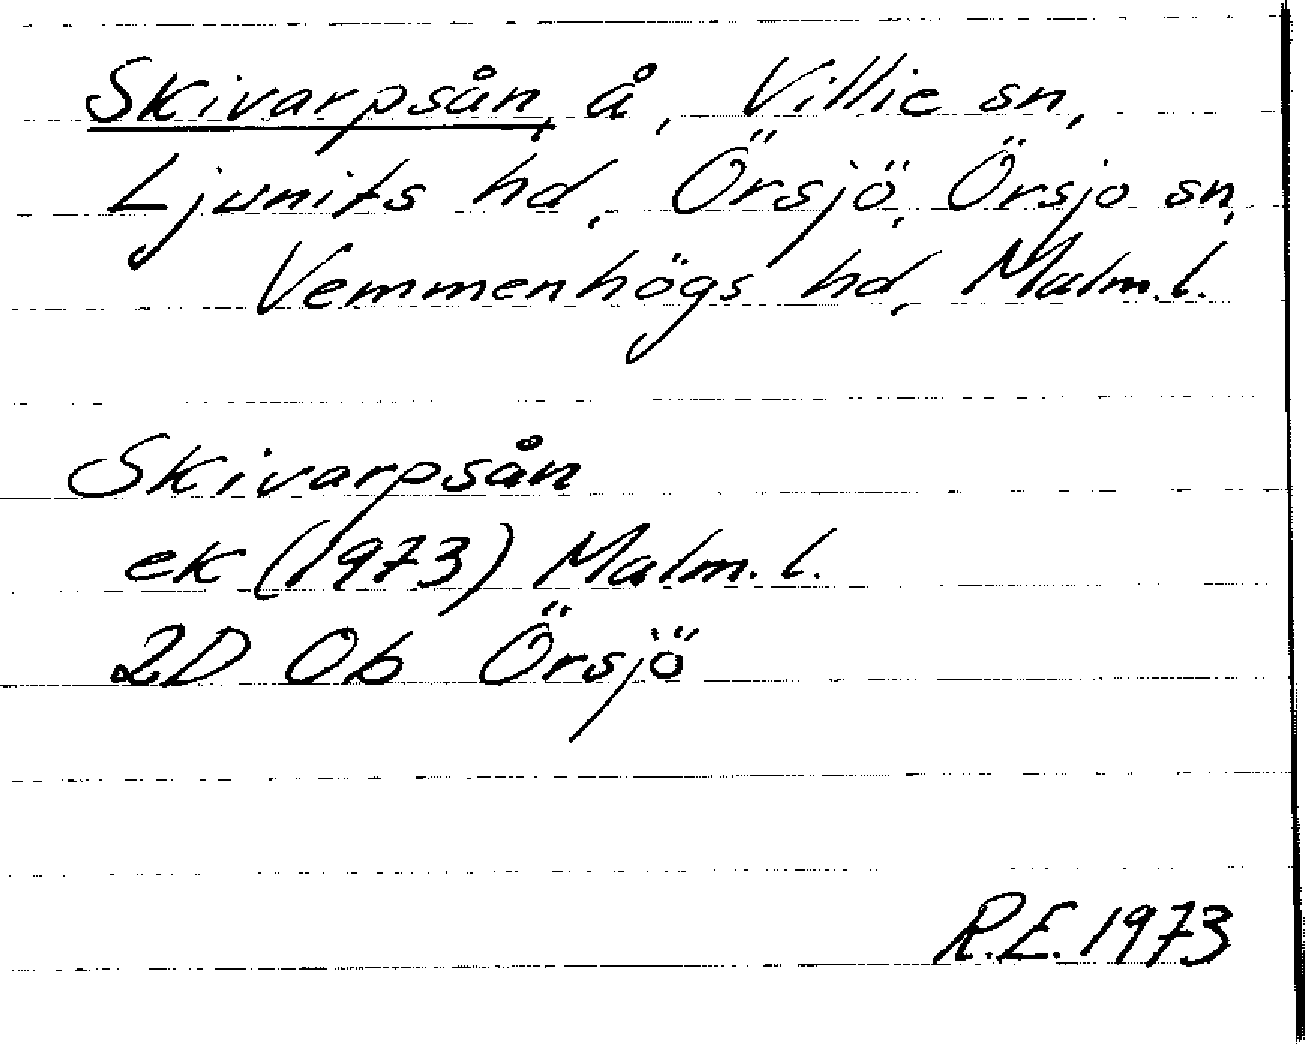 Skivarpsån, å, Villie sn,
Ljunits hd, Örsjö, Örsjo sn,
Vemmenhögs hd, Malm.l.
Skivarpsån
ek (1973) Malm.l.
2D Ob Örsjö
R.E. 1973